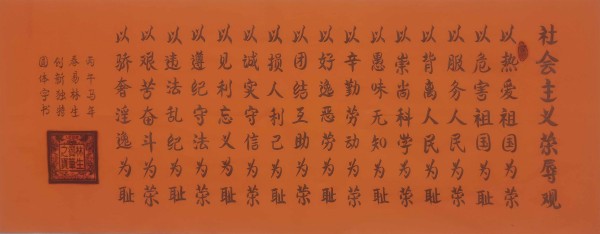 社会主义荣辱观
以热爱祖国为荣
以危害祖国为耻
以服务人民为荣
以背离人民为耻
以崇尚科学为荣
以愚昧无知为耻
以辛勤劳动为荣
以好逸恶劳为耻
以团结互助为荣
以损人利己为耻
以诚实守信为荣
以见利忘义为耻
以遵纪守法为荣
以违法乱纪为耻
以艰苦奋斗为荣
以骄奢淫逸为耻
丙午马年
春易林生
创新独特
圆体字书